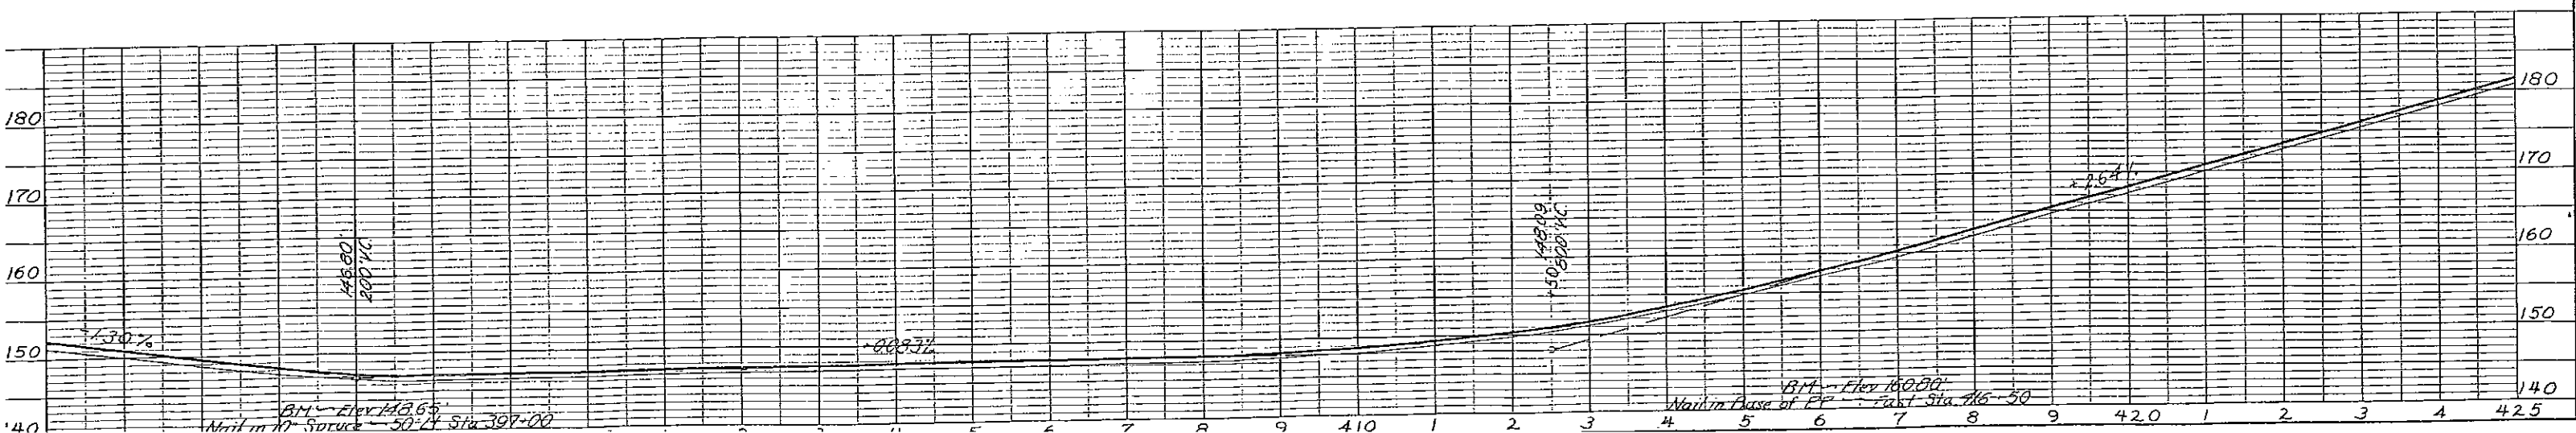 180
170
160
150
140
-1.30%
146.80'
200' VC
+0.083%
+50 148.09
800' VC
+2.64%
180
170
160
150
140
BM - Elev 148.65'
Nail in 10" Spruce - 50' Lt Sta 397+00
BM - Elev 160.80'
Nail in Base of PP - East Sta 416+50
1 2 3 4 5 6 7 8 9 410 1 2 3 4 5 6 7 8 9 420 1 2 3 4 425